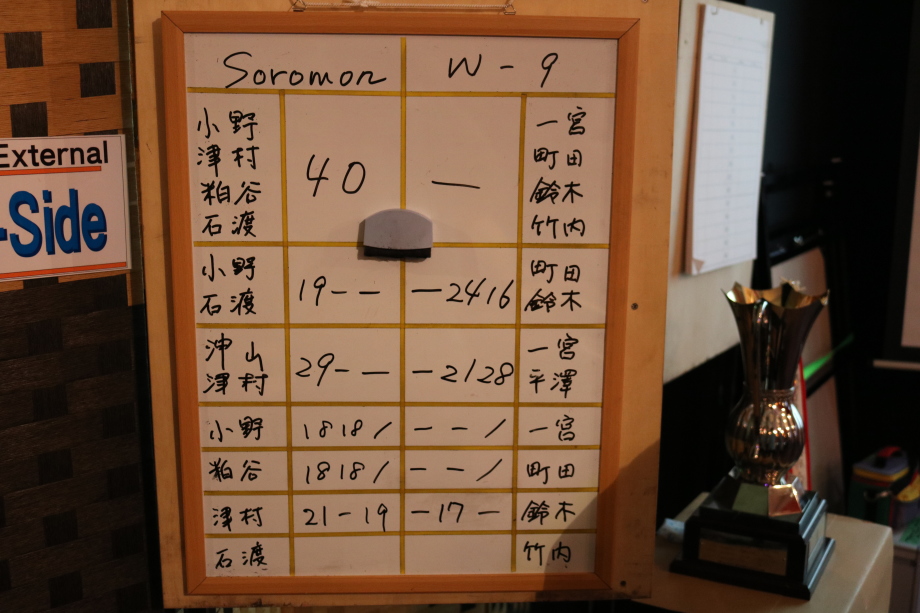 External
-Side
Soromon W-9
小野 一宮
津村 町田
粕谷 40 — 鈴木
石渡 竹内
小野 町田
石渡 19-- -2416 鈴木
沖山 一宮
津村 29-- -2128 平澤
小野 1818/ --/ 一宮
粕谷 1818/ --/ 町田
津村 21-19 -17- 鈴木
石渡 竹内